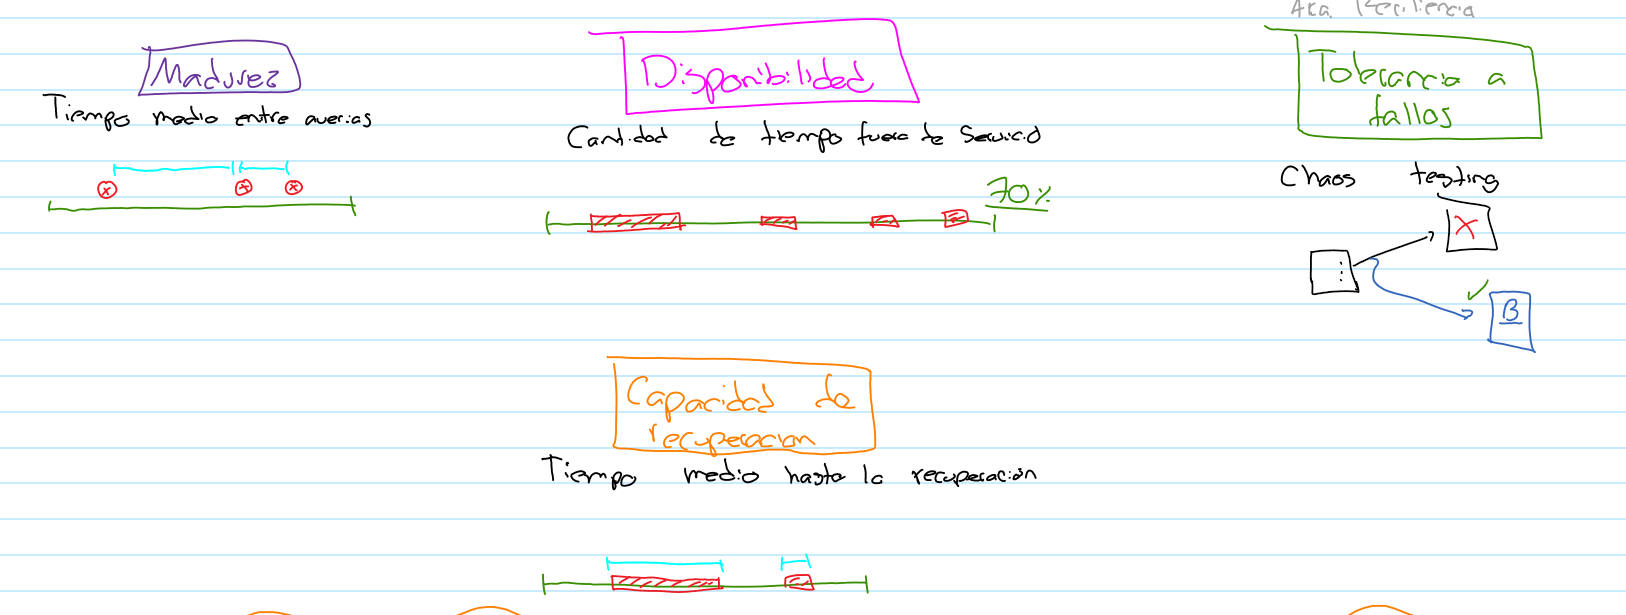 Aka. Resiliencia
Madurez
Tiempo medio entre averias
Disponibilidad
Cantidad de tiempo fuera de servicio
70%
Tolerancia a
fallos
Chaos testing
X
B
Capacidad de
recuperacion
Tiempo medio hasta la recuperación